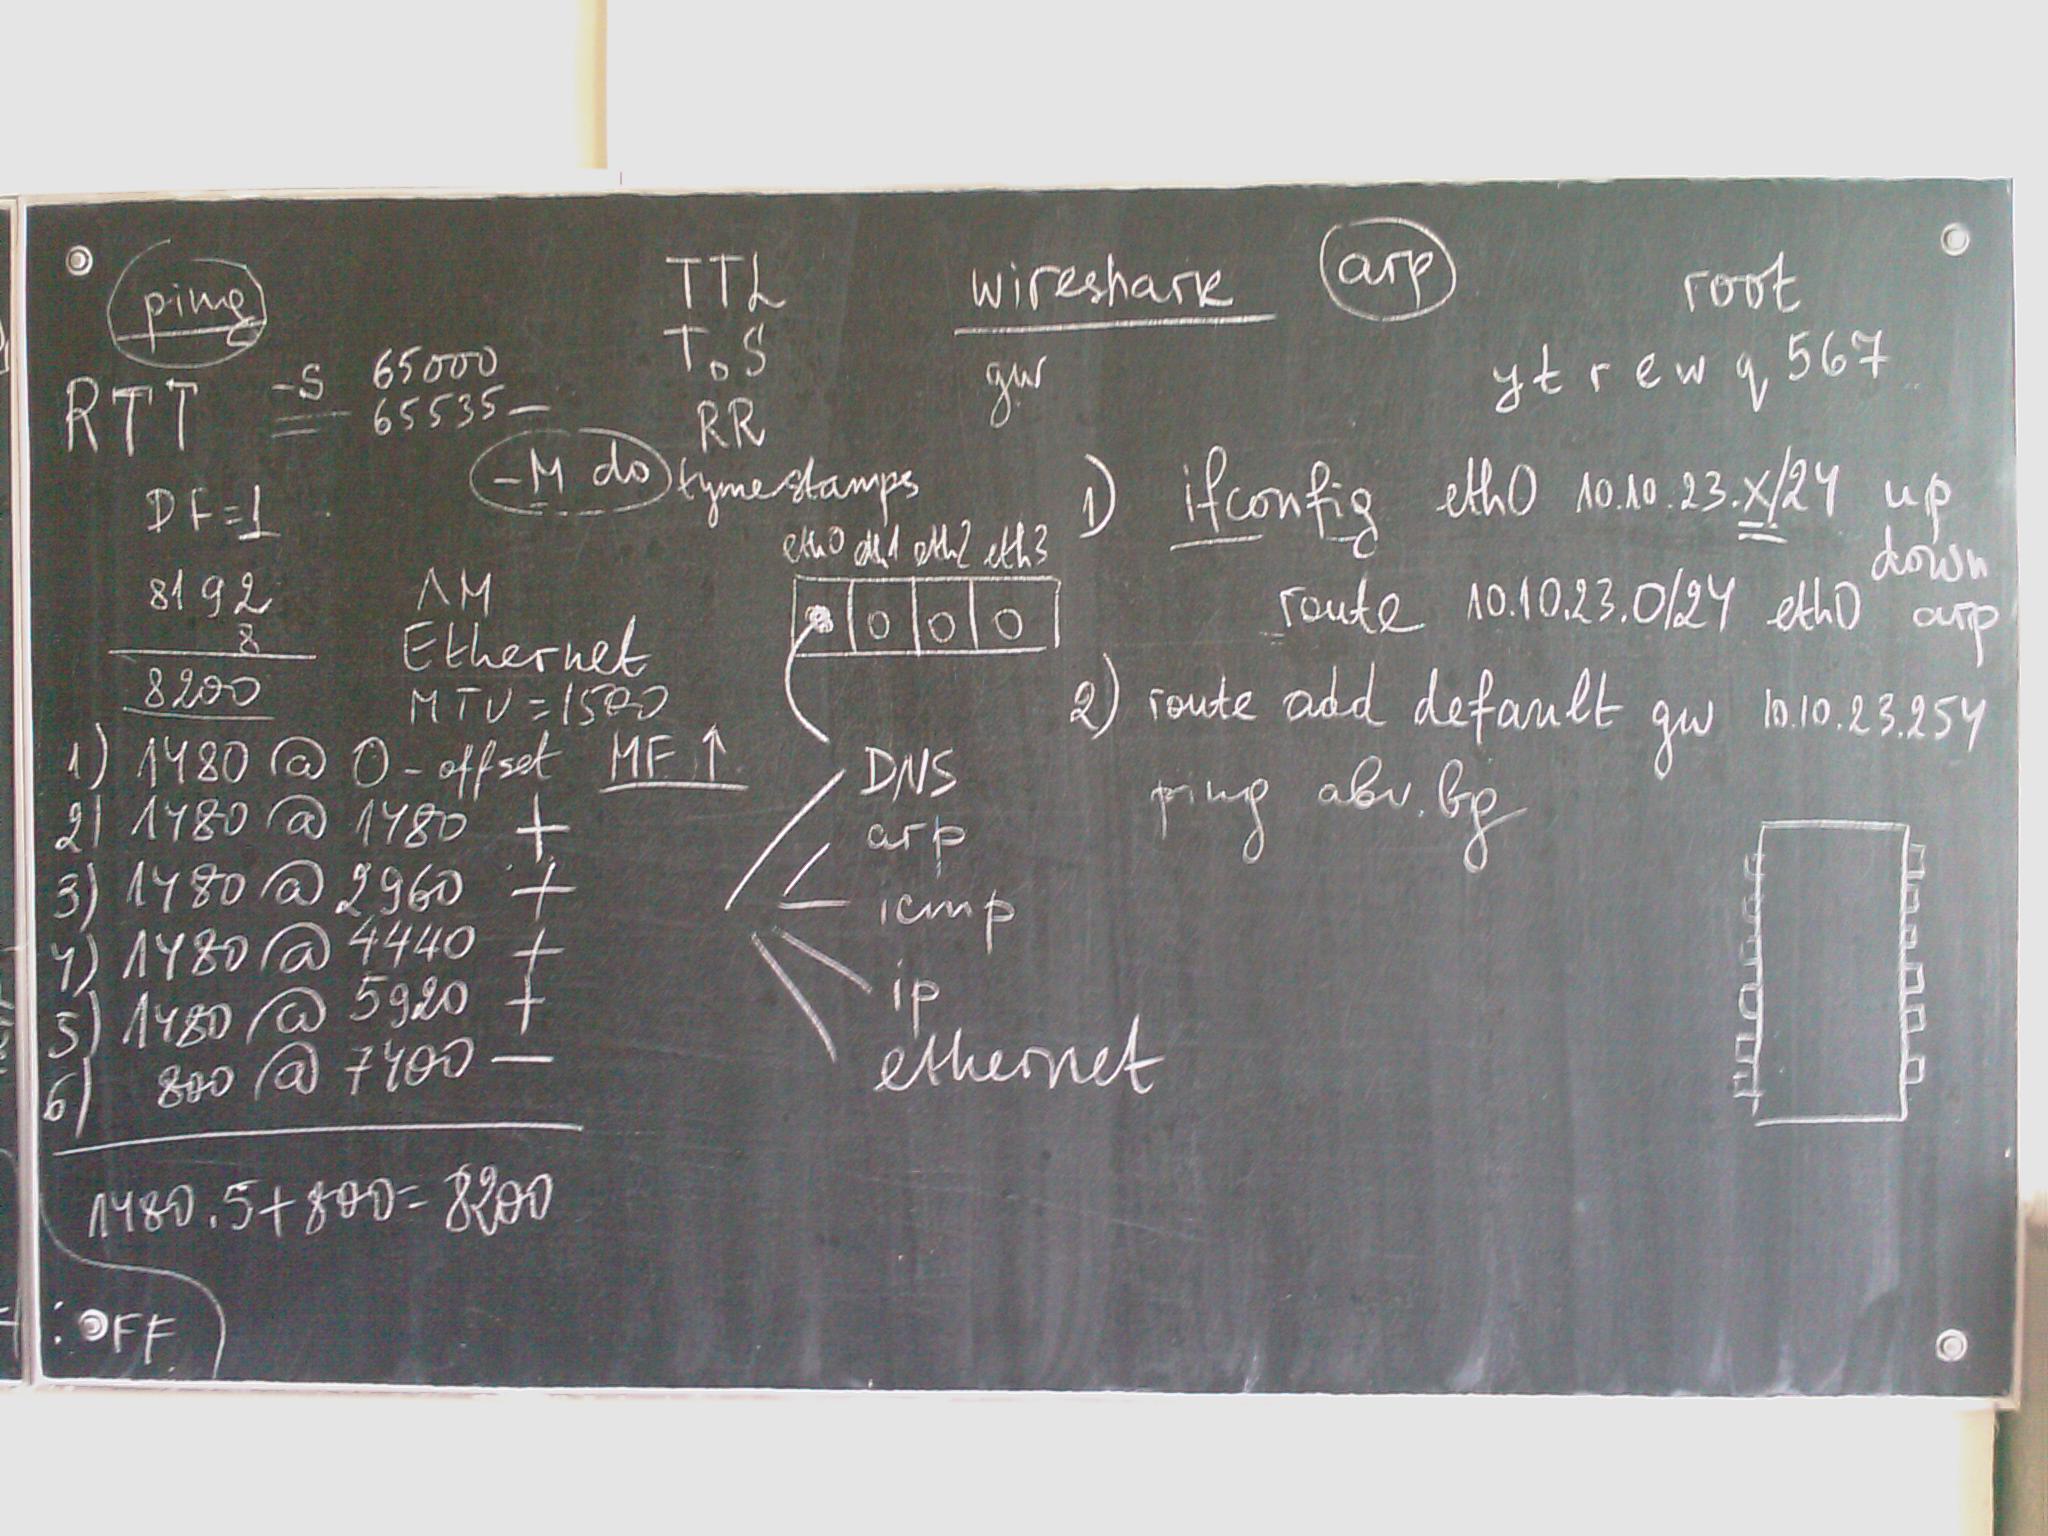 ping
RTT -s 65000
65535 –
DF=1
8192
8
8200
TTL
ToS
RR
-M do
tymestamps
ΛM
Ethernet
MTU = 1500
1) 1480 @ 0 - offset MF ↑
2) 1480 @ 1480 +
3) 1480 @ 2960 +
4) 1480 @ 4440 +
5) 1480 @ 5920 +
6) 800 @ 7400 –
1480.5+800=8200
:OFF
wireshark
gw
arp
eth0 eth1 eth2 eth3
0 0 0
DNS
arp
icmp
ip
ethernet
root
ytrewq567
1) ifconfig eth0 10.10.23.x/24 up
down
route 10.10.23.0/24 eth0 arp
2) route add default gw 10.10.23.254
ping abv.bg